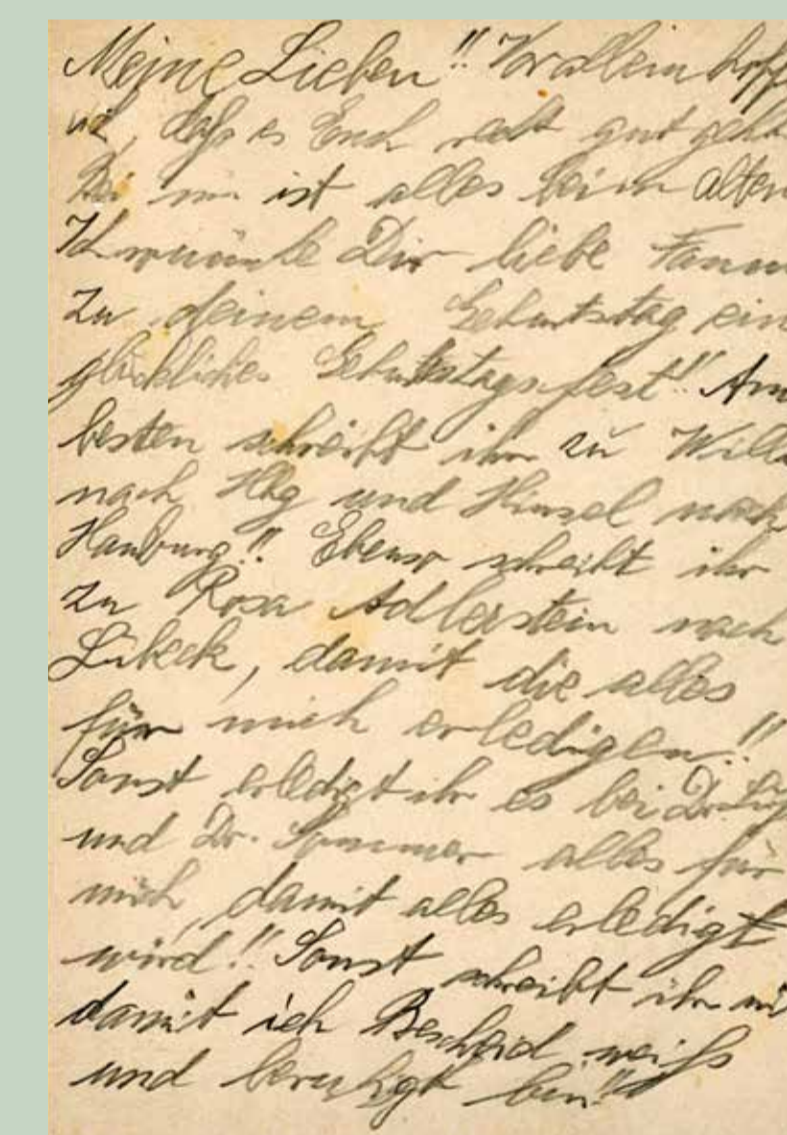 Meine Lieben!! Vor allem hoff
ich, daß es Euch recht gut geht
Bei mir ist alles beim alten
Ich wünsche Dir liebe Fann
zu deinem Geburtstag ein
glückliches Geburtstagsfest!! Am
besten schreibt ihr zu Will
nach Hbg und Hinsel nach
Hamburg!! Ebenso schreibt ihr
zu Rosa Adlerstein nach
Lübeck, damit die alles
für mich erledigen!!
Sonst erledigt ihr es bei Dr.
und Dr. Sommer alles für
mich, damit alles erledigt
wird!! Sonst schreibt ihr mi
damit ich Bescheid weiß
und beruhigt bin!!